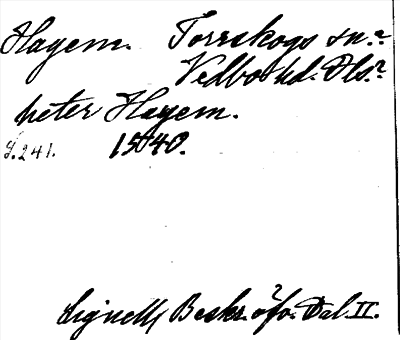 Hagem. Torrskogs sn.?
Vedbo hd. Dls.?
heter Hagem.
S. 241. 1540.
Signell, Beskr. öfv. Dal. II.